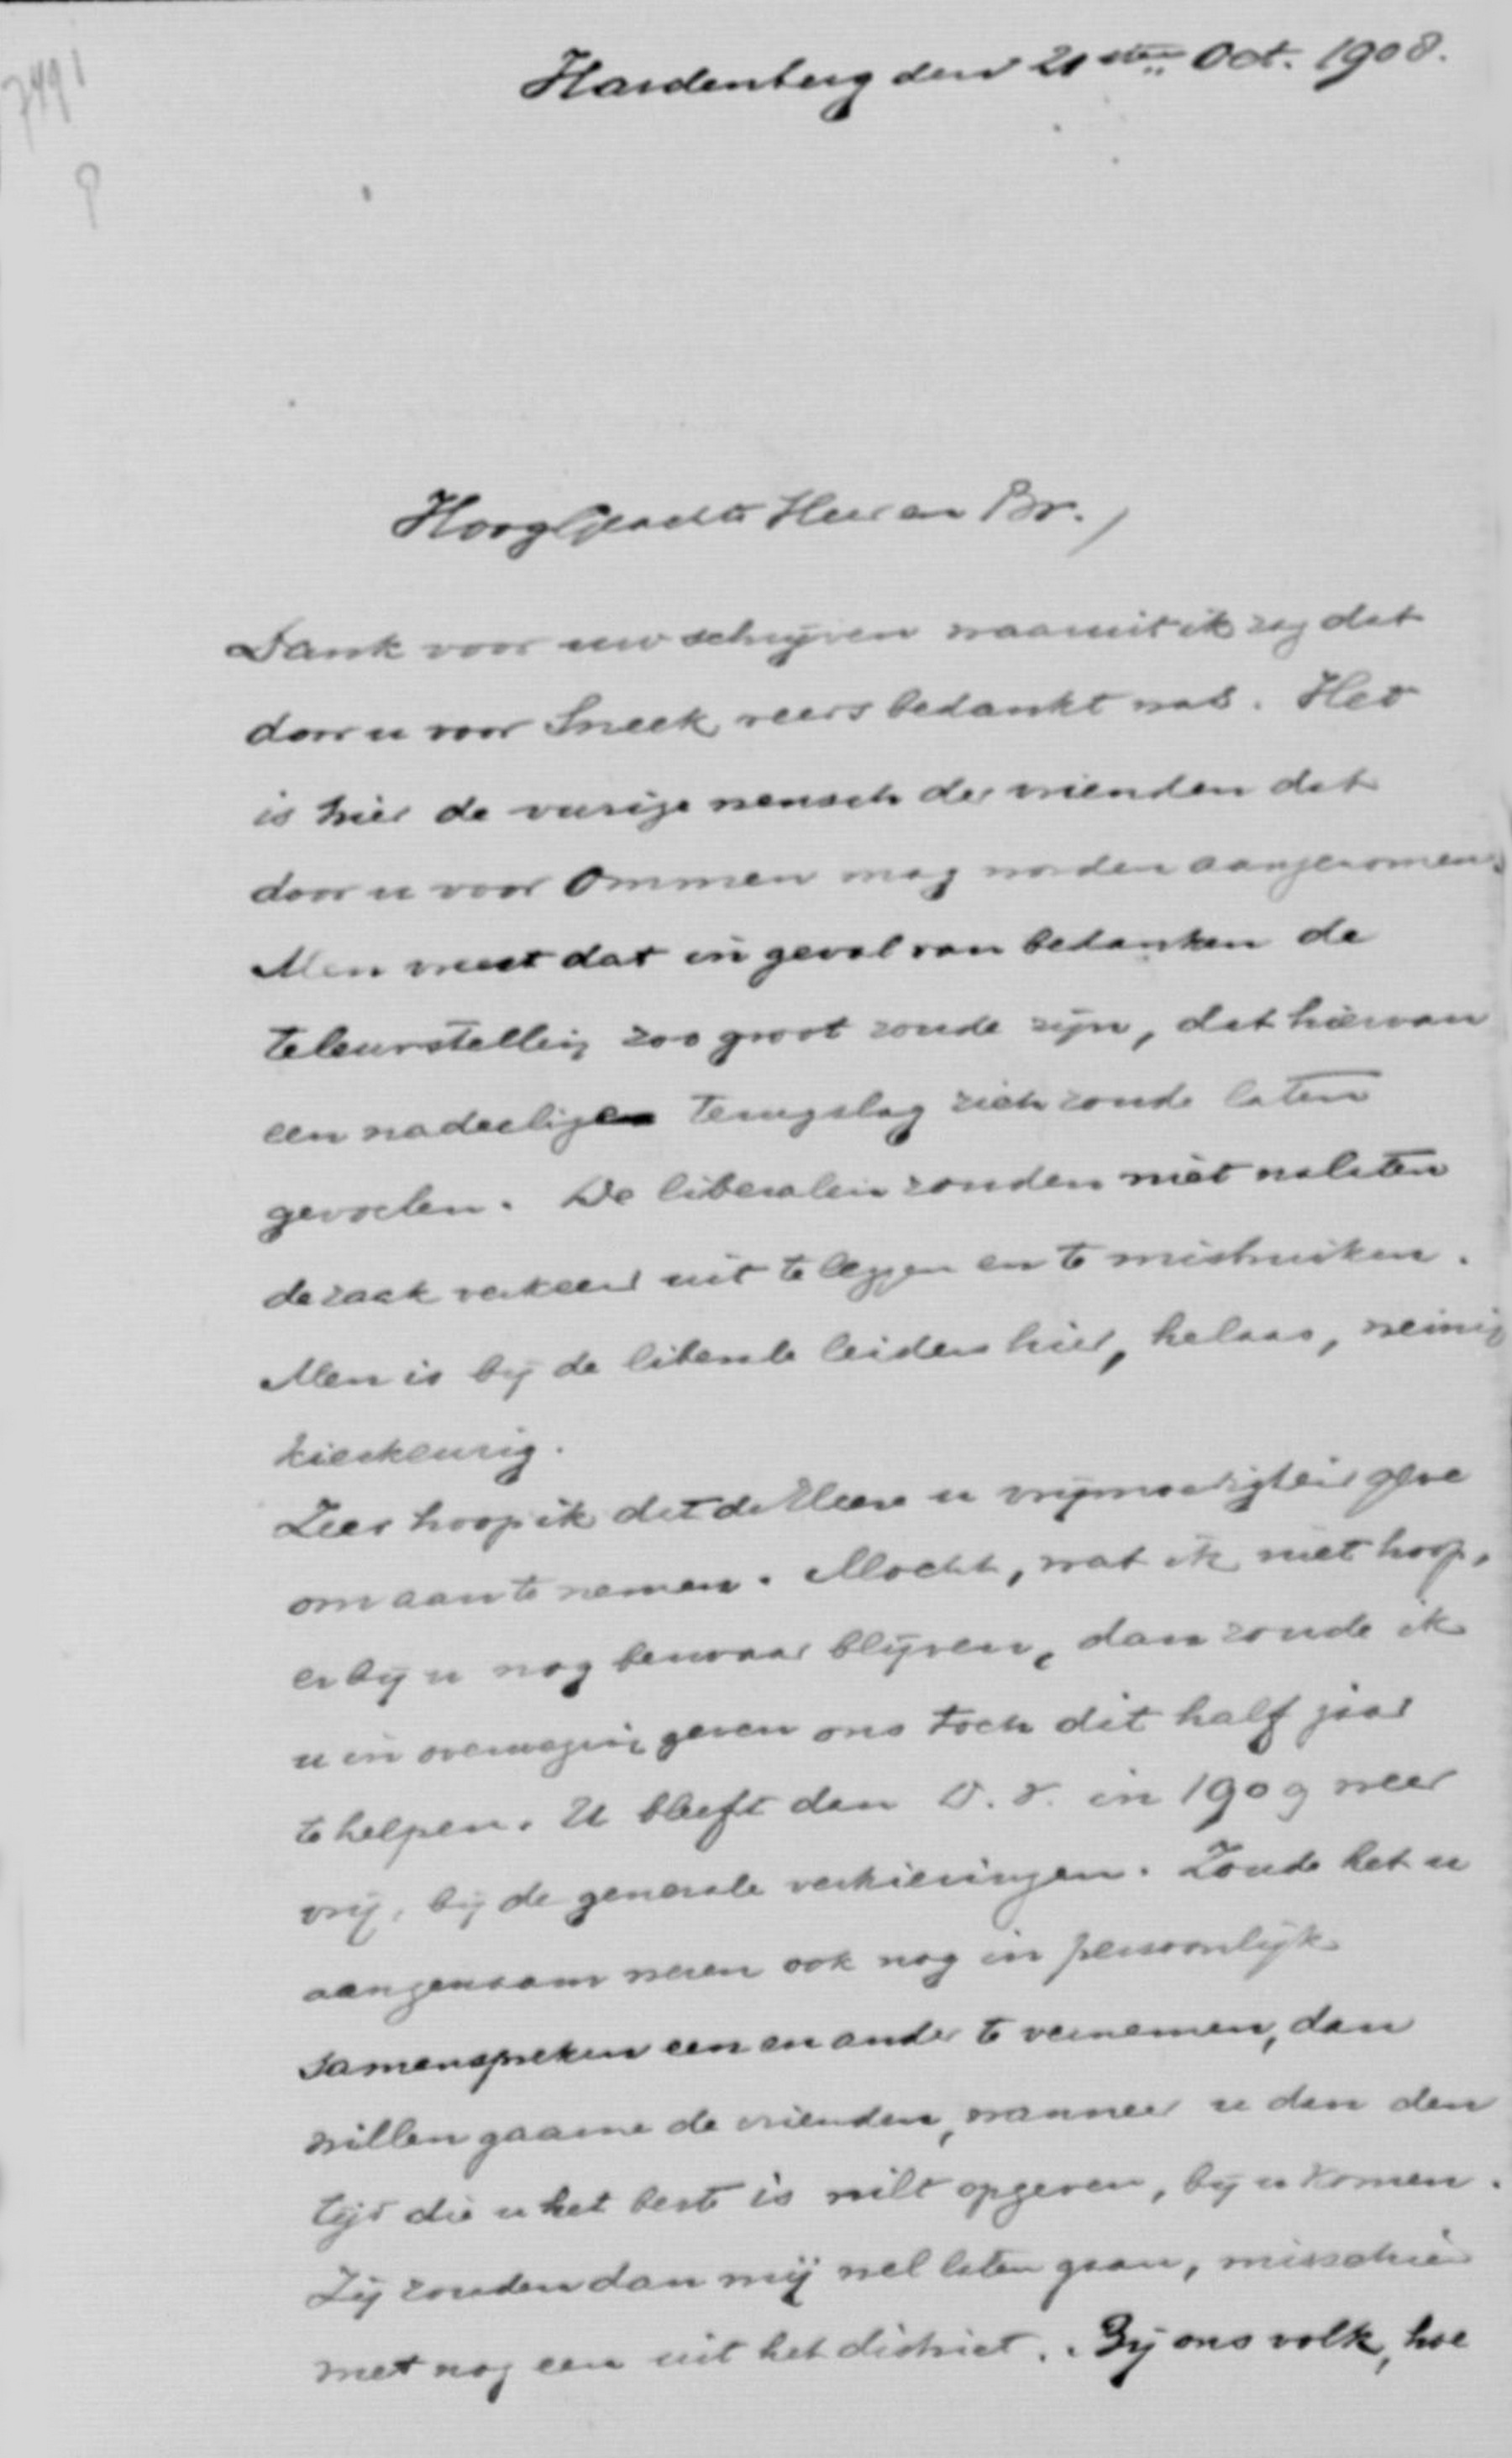 7491
Hardenberg den 21sten Oct. 1908.
HoogGeachte Heer en Br.,
Dank voor uw schrijven waaruit ik zag dat
door u voor Sneek reeds bedankt was. Het
is hier de vurige wensch der vrienden dat
door u voor Ommen mag worden aangenomen.
Men vreest dat in geval van bedanken de
teleurstelling zoo groot zoude zijn, dat hiervan
een nadeelige terugslag zich zoude laten
gevoelen. De liberalen zouden niet nalaten
de zaak verkeerd uit te leggen en te misbruiken.
Men is bij de liberale leiders hier, helaas, weinig
kieskeurig.
Zeer hoop ik dat de Heere u vrijmoedigheid geve
om aan te nemen. Mocht, wat ik niet hoop,
er bij u nog bezwaar blijven, dan zoude ik
u in overweging geven ons toch dit half jaar
te helpen. U bleeft dan D.V. in 1909 weer
vrij, bij de generale verkiezingen. Zoude het u
aangenaam wezen ook nog in persoonlijk
samenspreken een en ander te vernemen, dan
willen gaarne de vrienden, wanneer u dan den
tijd die u het beste is wilt opgeven, bij u komen.
Zij zouden dan mij wel laten gaan, misschien
met nog een uit het district. Bij ons volk, hoe